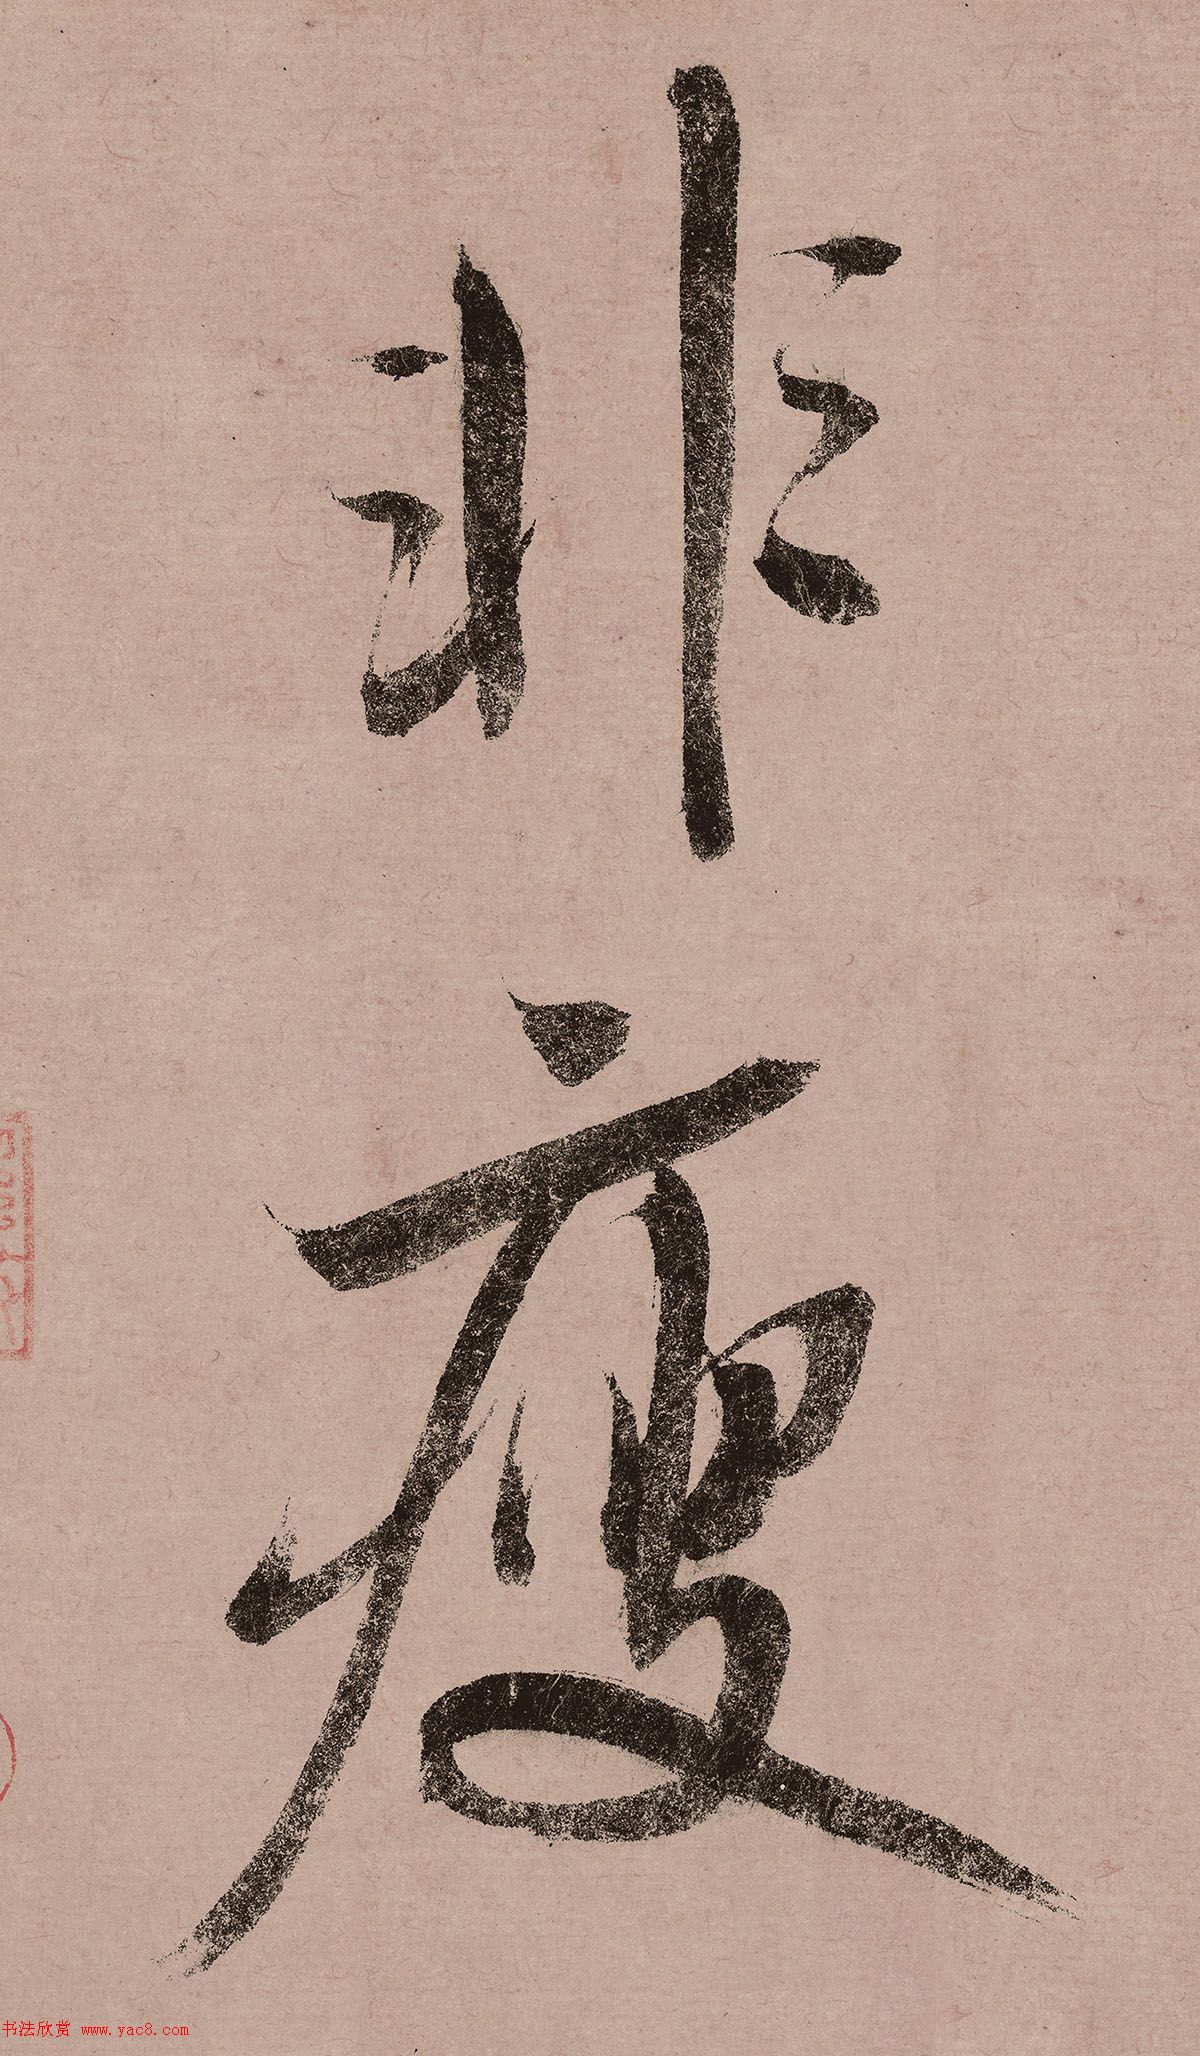 非瘦
书法欣赏 www.yac8.com